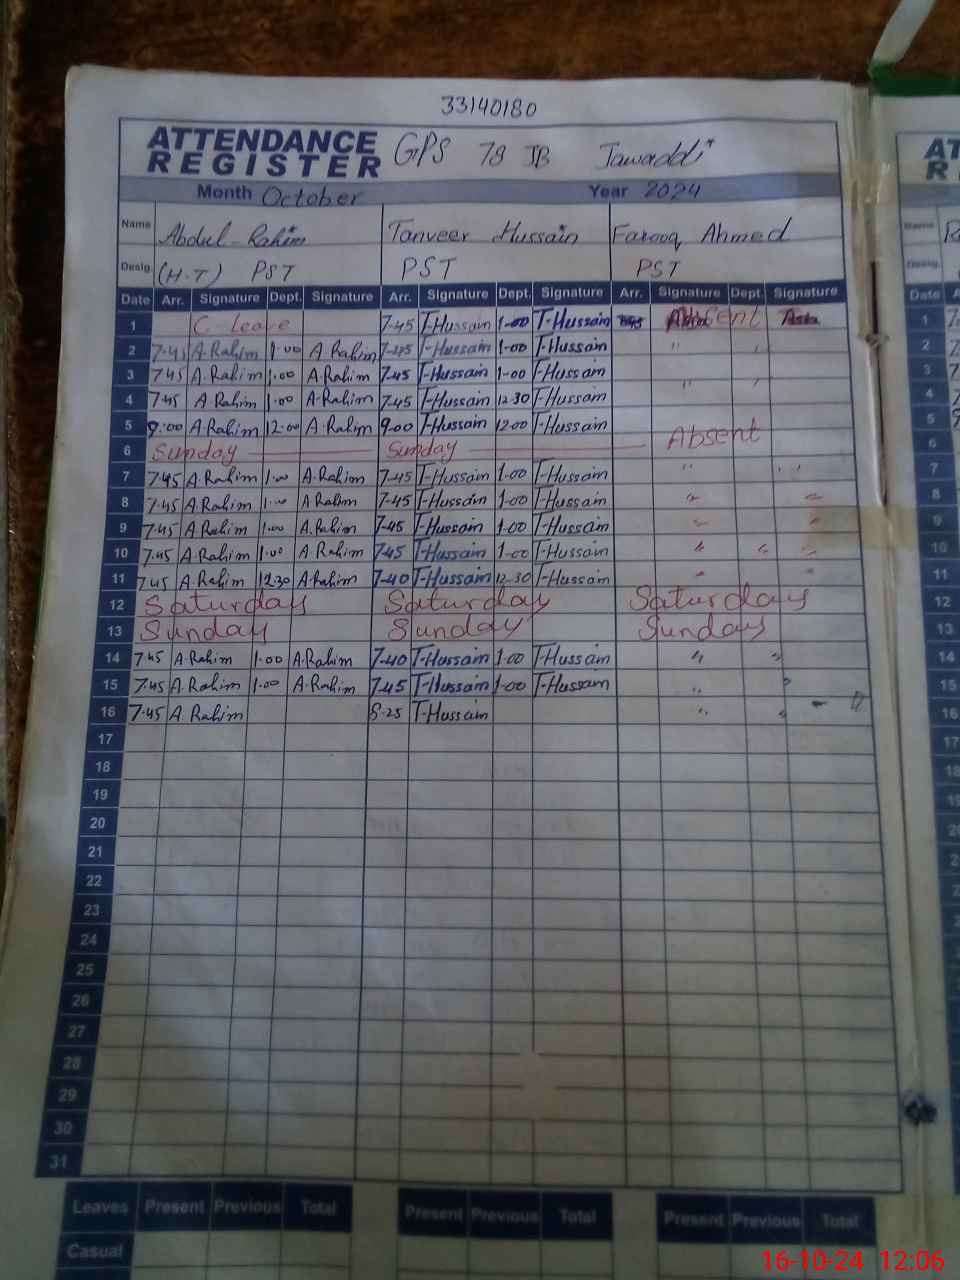 33140180
ATTENDANCE REGISTER GPS 78 JB Jawaddi
Month October Year 2024
Name Abdul-Rahim Tanveer Hussain Farooq Ahmed
Desig. (H-T) PST PST PST
Date Arr. Signature Dept. Signature Arr. Signature Dept. Signature Arr. Signature Dept. Signature
1 C-leave 7-45 T-Hussain 1-00 T-Hussain Absent
2 7.45 A.Rahim 1.00 A Rahim T-Hussain 1-00 T-Hussain "
3 7.45 A.Rahim 1.00 A.Rahim 7-45 T-Hussain 1-00 T-Hussain
4 7.45 A Rahim 1.00 A-Rahim 7-45 T-Hussain 12-30 T-Hussain "
5 9:00 A.Rahim 12.00 A Rahim 9-00 T-Hussain 12.00 T-Hussain
6 Sunday Sunday Absent
7 7.45 A.Rahim 1.00 A.Rahim 7-45 T-Hussain 1-00 T-Hussain "
8 7.45 A.Rahim 1.00 A Rahim 7-45 T-Hussain 1-00 T-Hussain " "
9 7.45 A.Rahim 1.00 A.Rahim 7-45 T-Hussain 1-00 T-Hussain "
10 7.45 A.Rahim 1.00 A.Rahim 7-45 T-Hussain 1-00 T-Hussain " " "
11 7.45 A.Rahim 12.30 A.Rahim 7-40 T-Hussain 12-30 T-Hussain "
12 Saturday Saturday Saturday
13 Sunday Sunday Sunday
14 7.45 A.Rahim 1.00 A.Rahim 7-40 T-Hussain 1-00 T-Hussain " "
15 7.45 A.Rahim 1.00 A.Rahim 7-45 T-Hussain 1-00 T-Hussain "
16 7.45 A.Rahim 8-25 T-Hussain "
17
18
19
20
21
22
23
24
25
26
27
28
29
30
31
Leaves Present Previous Total Present Previous Total Present Previous Total
Casual
16-10-24 12:06